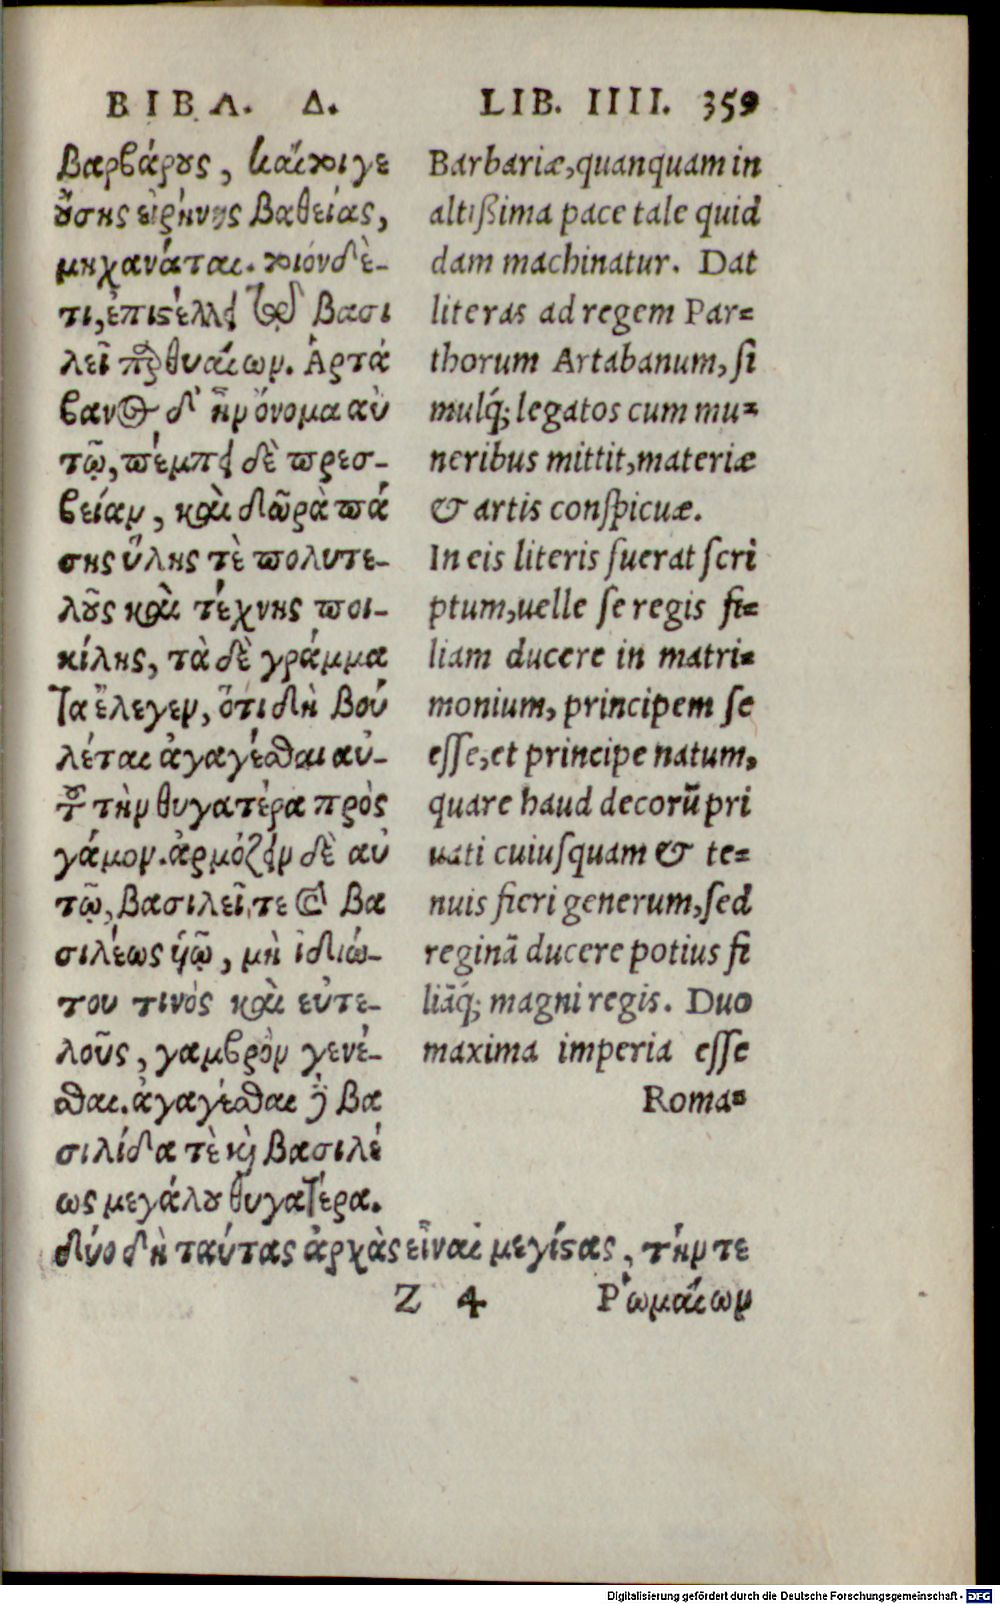 ΒΙΒΛ. Δ.
βαρβάρους, καίτοιγε
οὔσης εἰρήνης βαθείας,
μηχανάται. τοιόνδέ-
τι, ἐπιστέλλει τῷ βασι
λεῖ παρθυαίων. Ἀρτά
βανος δ' ἦν ὄνομα αὐ
τῷ, πέμπει δὲ πρεσ-
βείαν, καὶ δῶρὰ πά
σης ὕλης τὲ πολυτε-
λοῦς καὶ τέχνης ποι-
κίλης, τὰ δὲ γράμμα
τα ἔλεγεν, ὅτι δὴ βού
λεται ἀγαγέσθαι αὐ-
τοῦ τὴν θυγατέρα πρὸς
γάμον. ἁρμόζειν δὲ αὐ
τῷ, βασιλεῖ, τε καὶ βα
σιλέως ὑῷ, μὴ ἰδιώ-
του τινὸς καὶ εὐτε-
λοῦς, γαμβρὸν γενέ-
σθαι. ἀγαγέσθαι δὲ βα
σιλίδα τὲ καὶ βασιλέ
ως μεγάλου θυγατέρα.
δύο δὴ ταύτας ἀρχὰς εἶναι μεγίστας, τήν τε
Z 4 Ῥωμαίων
LIB. IIII. 359
Barbariæ, quanquam in
altißima pace tale quid
dam machinatur. Dat
literas ad regem Par=
thorum Artabanum, si
mulq́; legatos cum mu=
neribus mittit, materiæ
& artis conspicuæ.
In eis literis fuerat scri
ptum, uelle se regis fi=
liam ducere in matri=
monium, principem se
esse, et principe natum,
quare haud decorū pri
uati cuiusquam & te=
nuis fieri generum, sed
reginā ducere potius fi
liāq́; magni regis. Duo
maxima imperia esse
Roma=
Digitalisierung gefördert durch die Deutsche Forschungsgemeinschaft - DFG